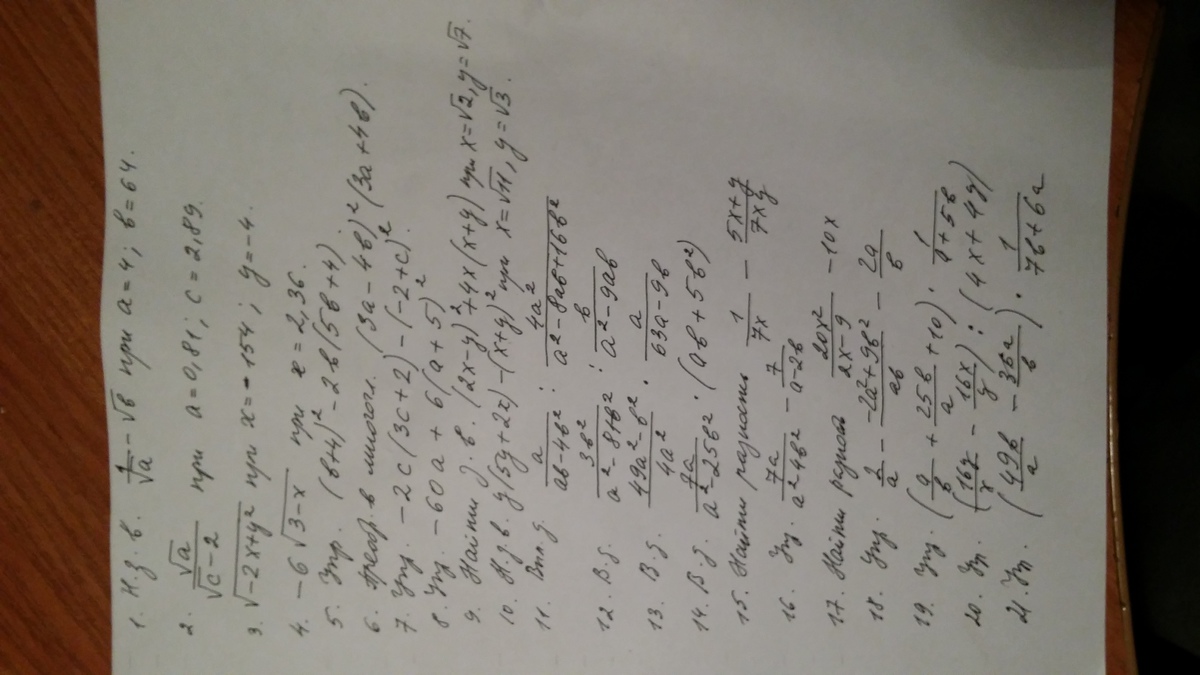 1. Н.з.в. 1/√a − √в при a=4; в=64.
2. √a/(√c−2) при a=0,81; c=2,89.
3. √(−2x+y²) при x=−154; y=−4.
4. −6√(3−x) при x=2,36.
5. Упр. (в+4)²−2в(5в+4)
6. Преобр. в многоч. (3a−4в)²(3a+4в).
7. Упр. −2c(3c+2)−(−2+c)².
8. Уп. −60a+6(a+5)²
9. Найти з.в. (2x−y)²+4x(x+y) при x=√2, y=√7.
10. Н.з.в. y(5y+2x)−(x+y)² при x=√11, y=√3.
11. Вып.д. a/(aв−4в²) : 4a²/(a²−8aв+16в²)
12. В.д. 3в²/(a²−81в²) : в/(a²−9aв)
13. В.д. (49a²−в²)/4a² · a/(63a−9в)
14. В.д. 7a/(a²−25в²) · (aв+5в²)
15. Найти разность 1/7x − (5x+y)/7xy
16. Уп. 7a/(a²4в²) − 7/(a−2в)
17. Найти разность 20x²/(2x−9) −10x
18. Упр. 2/a − (−2a²+9в²)/aв − 2a/в
19. Уп. (a/в + 25в/a +10) · 1/(a+5в)
20. Уп. (16y/x − 16x/y) : (4x+4y)
21. Уп. (49в/a − 36a/в) · 1/(7в+6a)